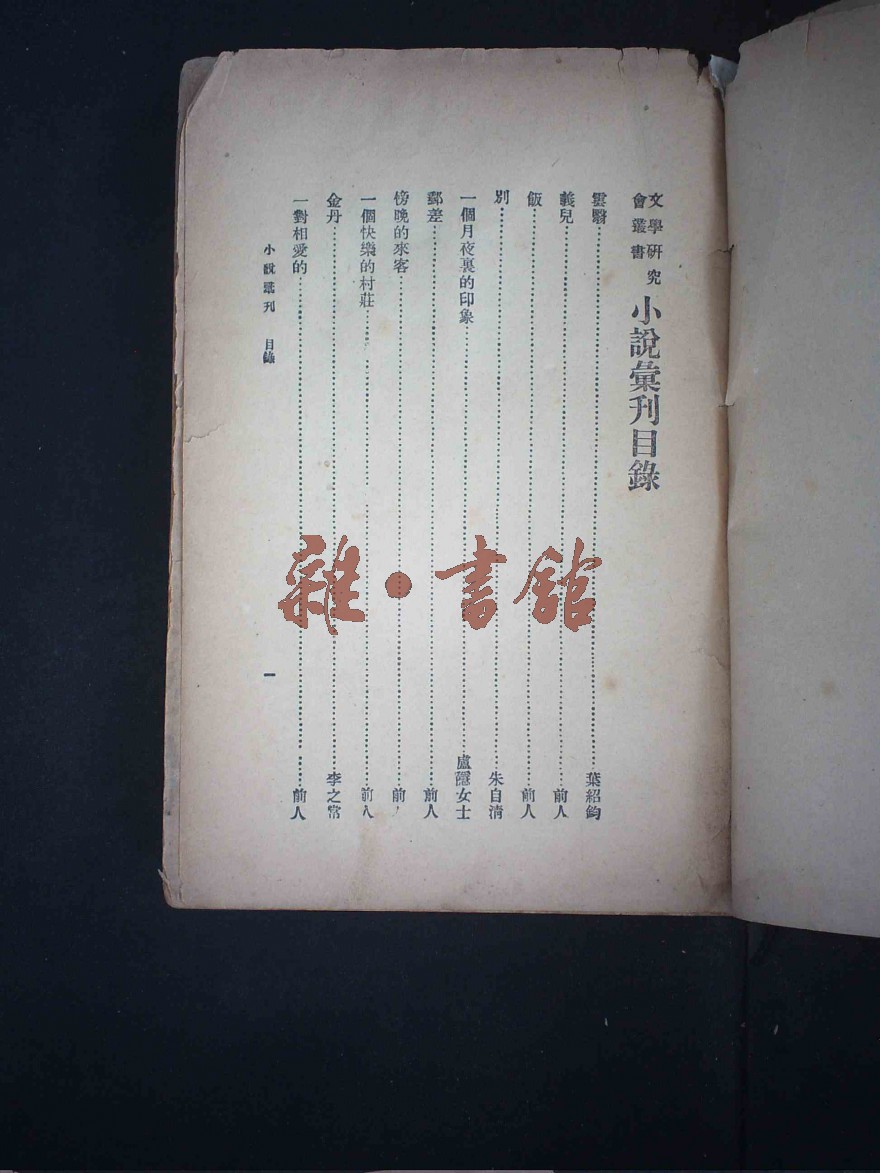 文學研究
會叢書
小說彙刊目錄
雲翳……葉紹鈞
義兒……前人
飯……前人
別……朱自清
一個月夜裏的印象……盧隱女士
郵差……前人
傍晚的來客……前人
一個快樂的村莊……前人
金丹……李之常
一對相愛的……前人
小說彙刊 目錄
一
雜•書館